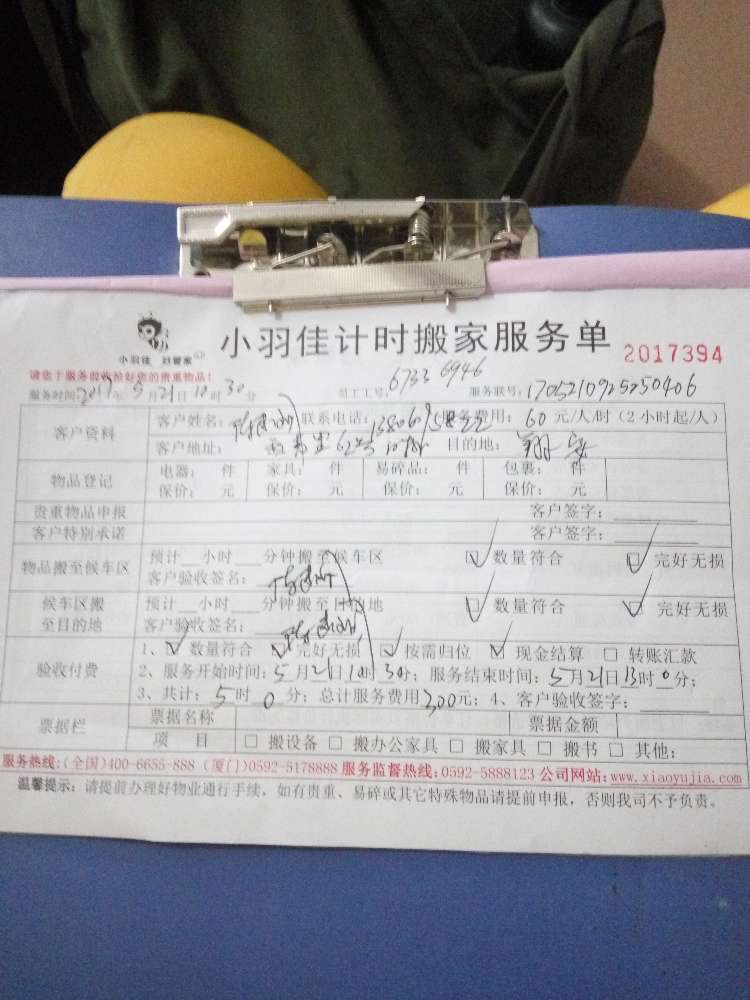 小羽佳 刘管家
小羽佳计时搬家服务单 2017394
请您于服务前收拾好您的贵重物品!
服务时间:2017年5月21日10时30分 员工工号:6733 6946 服务联号:1705210925250406
客户资料 客户姓名: 联系电话: 服务费用: 60 元/人/时(2小时起/人)
客户地址: 62号 目的地: 翔安
物品登记 电器: 件 家具: 件 易碎品: 件 包裹: 件
保价: 元 保价: 元 保价: 元 保价: 元
贵重物品申报 客户签字:
客户特别承诺 客户签字:
物品搬至候车区 预计__小时__分钟搬至候车区 数量符合 完好无损
客户验收签名:
候车区搬至目的地 预计__小时__分钟搬至目的地 数量符合 完好无损
客户验收签名:
验收付费 1、数量符合 完好无损 按需归位 现金结算 转账汇款
2、服务开始时间:5月21日10时30分; 服务结束时间:5月21日13时0分;
3、共计: 5时0分; 总计服务费用300元; 4、客户验收签字:
票据栏 票据名称 票据金额
项 目 搬设备 搬办公家具 搬家具 搬书 其他:
服务热线:(全国)400-6655-888 (厦门)0592-5178888 服务监督热线:0592-5888123 公司网站:www.xiaoyujia.com
温馨提示: 请提前办理好物业通行手续, 如有贵重、易碎或其它特殊物品请提前申报, 否则我司不予负责。